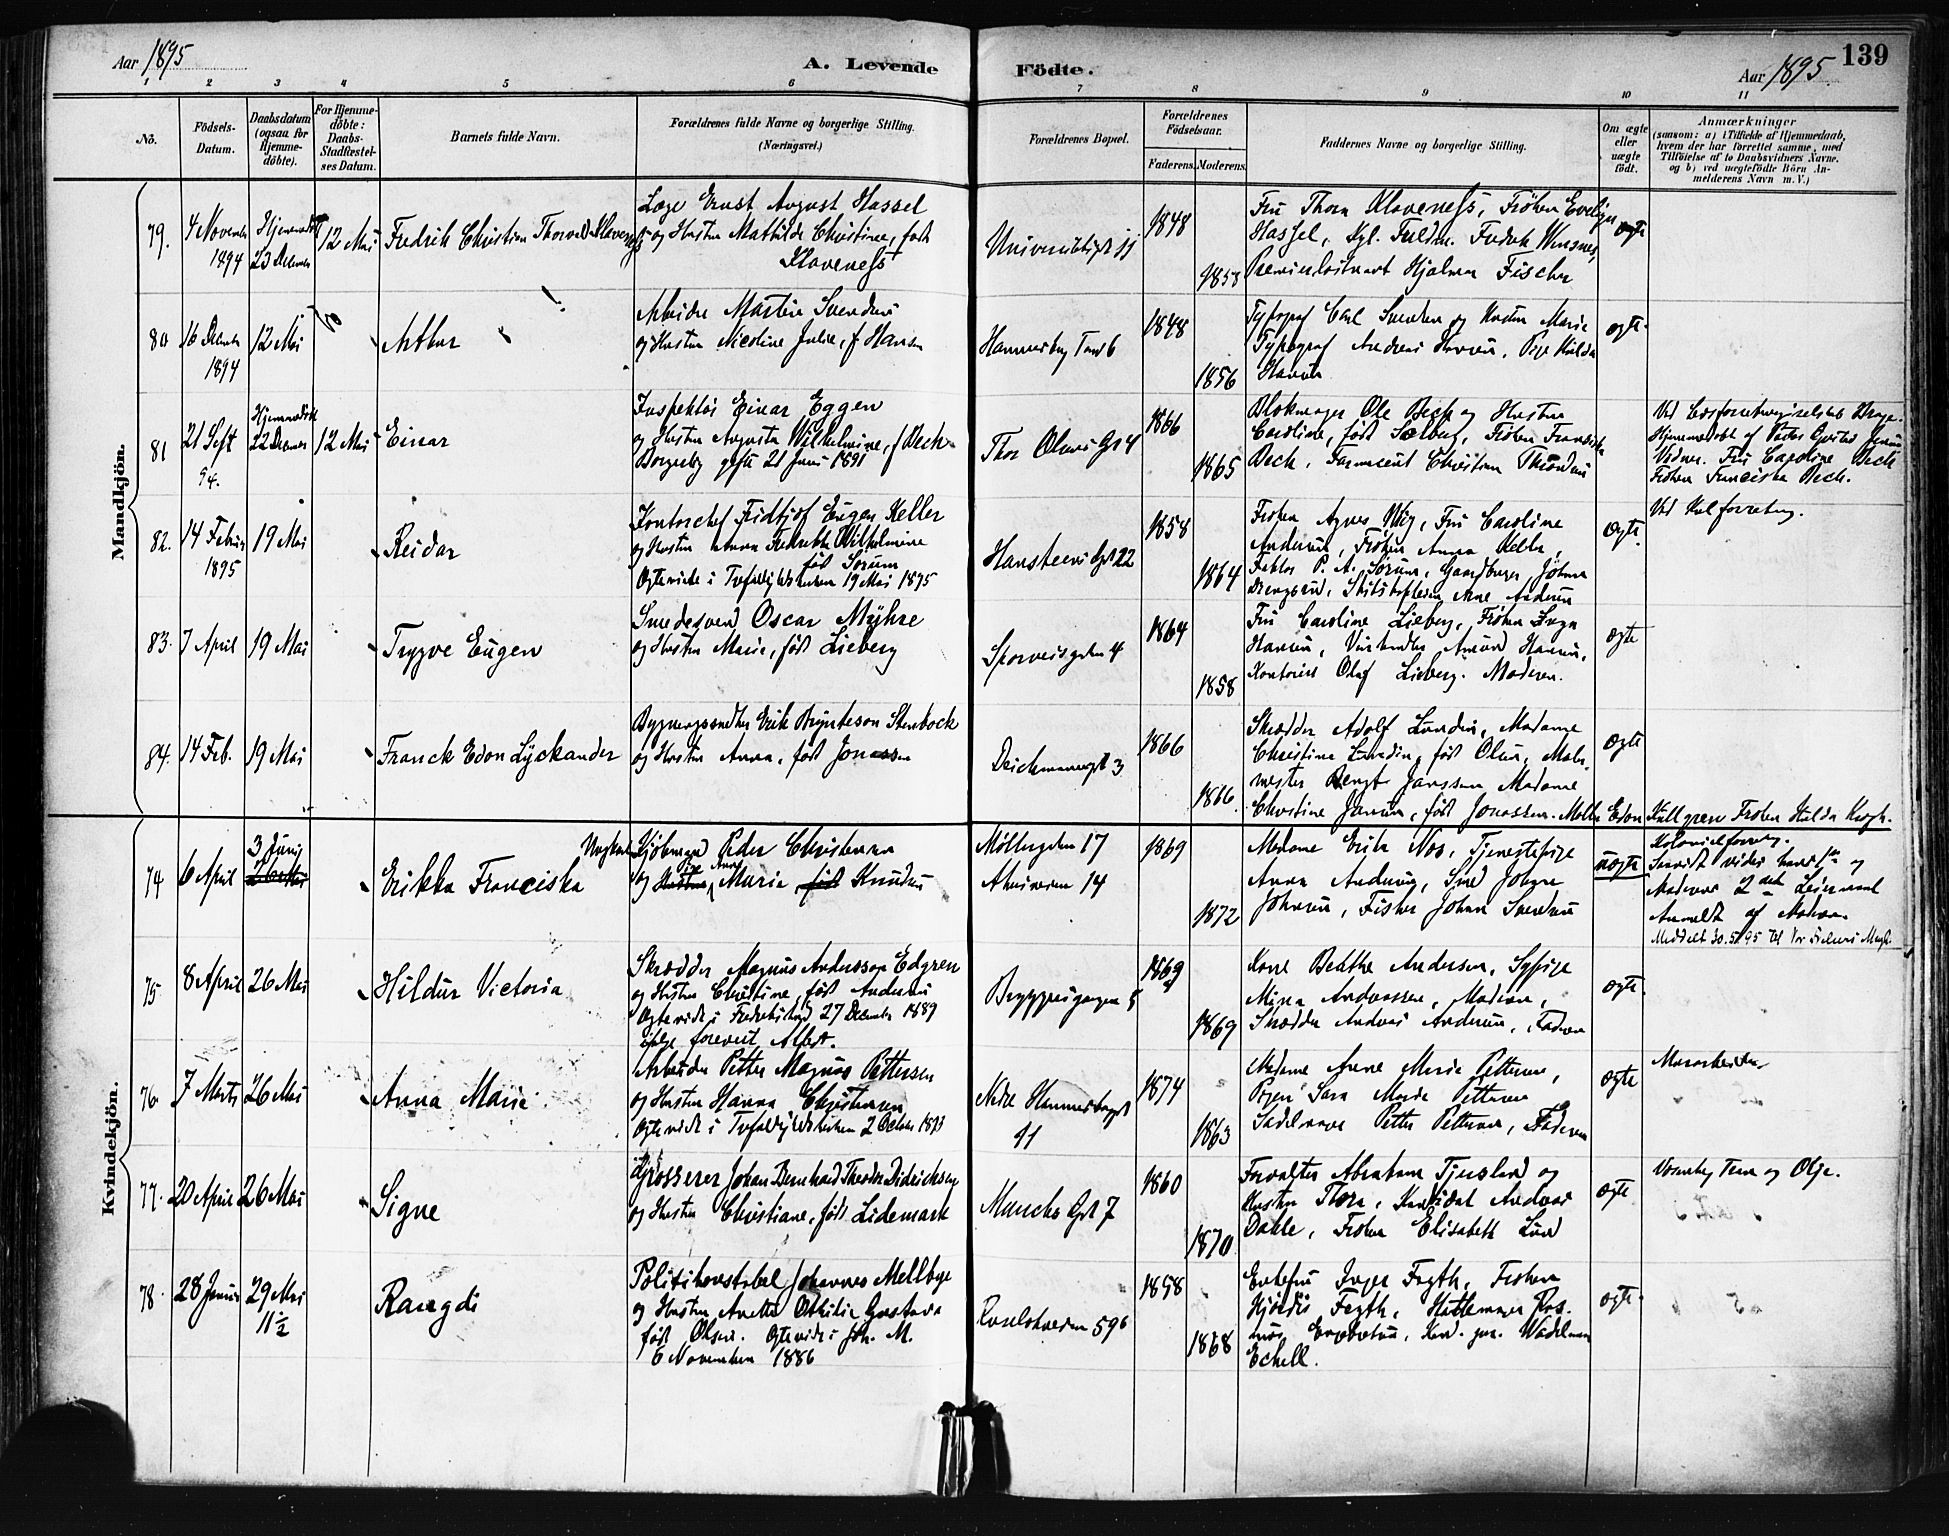 Aar 1895
A. Levende
Födte.
Aar 1895
139
1 2 3 4 5 6 7 8 9 10 11
No.
Födsels-
Datum.
Daabsdatum
(ogsaa for
Hjemme-
döbte).
For Hjemme-
döbte:
Daabs-
Stadfæstel-
ses Datum.
Barnets fulde Navn.
Forældrenes fulde Navne og borgerlige Stilling.
(Næringsvei.)
Forældrenes Bopæl.
Forældrenes
Födselsaar.
Faderens. Moderens.
Faddernes Navne og borgerlige Stilling.
Om ægte
eller
uægte
födt.
Anmærkninger
(saasom: a) i Tilfælde af Hjemmedaab,
hvem der har forrettet samme, med
Tilföielse af to Daabsvidners Navne.
og b) ved uægtefödte Börn An-
melderens Navn m. V.)
Mandkjön.
79.
4 November
1894
Hjemmedöbt
23 December
12 Mai
Fredrik Christian Thorvald Klaveness
Læge Ernst August Hassel
og Hustru Mathilde Christine, født
Klaveness
1848
1858
Fru Thora Klaveness, Frøken Evelyn
Hassel,
Premierløitnant Hjalmar Fischer
ægte
80
16 Decemb
1894
12 Mai
Arthur
Arbeider Martin Svendsen
og Hustru Nicoline Julie, f Hansen
Hammersborg Torv 6
1848
1856
Typograf Carl Svendsen og Hustru Marie
Typograf Andreas Hansen, Pige Hulda
Hansen
ægte.
81
21 Sept
94.
Hjemmedöbt
22 December
12 Mai
Einar
Inspektör Einar Eggen
og Hustru Augusta Wilhelmine, f Bech
Borgerlig gifte 21 Juni 1891
Thor Olsens Gd 4
1866
1865
Blokmager Ole Bech og Hustru
Caroline, født Solberg, Frøken Franciska
Bech, Farmaceut Christian
Hjemmedøbt af
Vidner. Fru Caroline Bech
Frøken Franciska Bech.
82.
14 Februar
1895
19 Mai
Reidar
Kontorchef Fridtjof Eugen Keller
og Hustru Anna Fredrikke Wilhelmine
født Sörum
Ægteviede i Trefoldighedskirken 19 Mai 1895
Hansteens Gd 22
1858
1864
Frøken Agnes , Fru Caroline
Andersen, Frøken Anna Keller,
Faktor P. A. Sörum, Gaardbruger Johan
Arne Andersen
ægte.
83.
7 April
19 Mai
Trygve Eugen
Smedesvend Oscar Myhre
og Hustru Marie, født Lieberg
Sporveisgaden 4
1864
1858
Fru Caroline Lieberg, Frøken
Hansen, Vinhandler Hansen,
Kontorist Olaf Lieberg. Moderen.
ægte
84.
14 Feb.
19 Mai
Franck Edon Lyckander
Bygningssnedker Erik Brynteson Stenbock
og Hustru Anna, født Jonassen
Deichmannsgd 3
1866
1866.
Skrædder Adolf Lundin, Madame
Christine Lundin, født Olsen, Maler-
mester Bengt Janssen Madame
Christine Jansen, født Jonassen. Møller Edon Kullgren Frøken Hulda Krogh.
ægte
Kvindekjön.
74
6 April
3 Juni
26 Mai
Erikka Franciska
Ungkarl Sjömand Peder Christensen
og Hustru Pige Anna Marie født Knudsen
Møllergaden 17
14
1869
1872
Madame Erika Næs, Tjenestepige
Anna Andersen, Smed Johan
Johansen, Fisker Johan Svendsen
uægte
Moderens 2det Leiermaal
Anmeldt af Moderen
Meddelt 30.5.95 til Vor Frelsers Menigh.
75
8 April
26 Mai
Hildur Victoria
Skrædder Magnus Andersson Edgren
og Hustru Christine, født Andersen
Ægteviede i Fredrikstad 27 December 1889
ifølge forevist Attest.
Bryggerigangen 5
1869
1869
Kone Beathe Andersen, Sypige
Mina Andreassen, Moderen,
Skrædder Andreas Andersen, Faderen
ægte.
76.
7 Marts
26 Mai
Anna Marie
Arbeider Petter Magnus Pettersen
og Hustru Hanna Christensen
Ægteviede i Trefoldighedskirken 2 October 1893
Nedre Hammersborggd
11
1874
1863
Madame Anne Marie Pettersen,
Pigen Sara Marie Pettersen
Sadelmager Petter Pettersen, Faderen
ægte
77.
20 April
26 Mai
Signe
Grosserer Johan Bernhard Theodor Didricksen
og Hustru Christiane, født Lidemark
Munchs Gd 7
1860
1870
Forvalter Abraham Tjersland og
Hustru Thora, Kandidat Andreas
Dahle, Frøken Elisabeth Lund
ægte
78.
28 Januar
29 Mai
11½
Rangdi
Politikonstabel Johannes Mellbye
og Hustru Anette Othilie Gustava
født Olsen. Ægteviede i Joh. M.
6 November 1886
59b
1858
1868
Enkefru Inger Fegth, Frøken
Hjördis Fegth, Hattemager Ras-
mus , Kand. jur. Waldemar
Echell.
ægte.